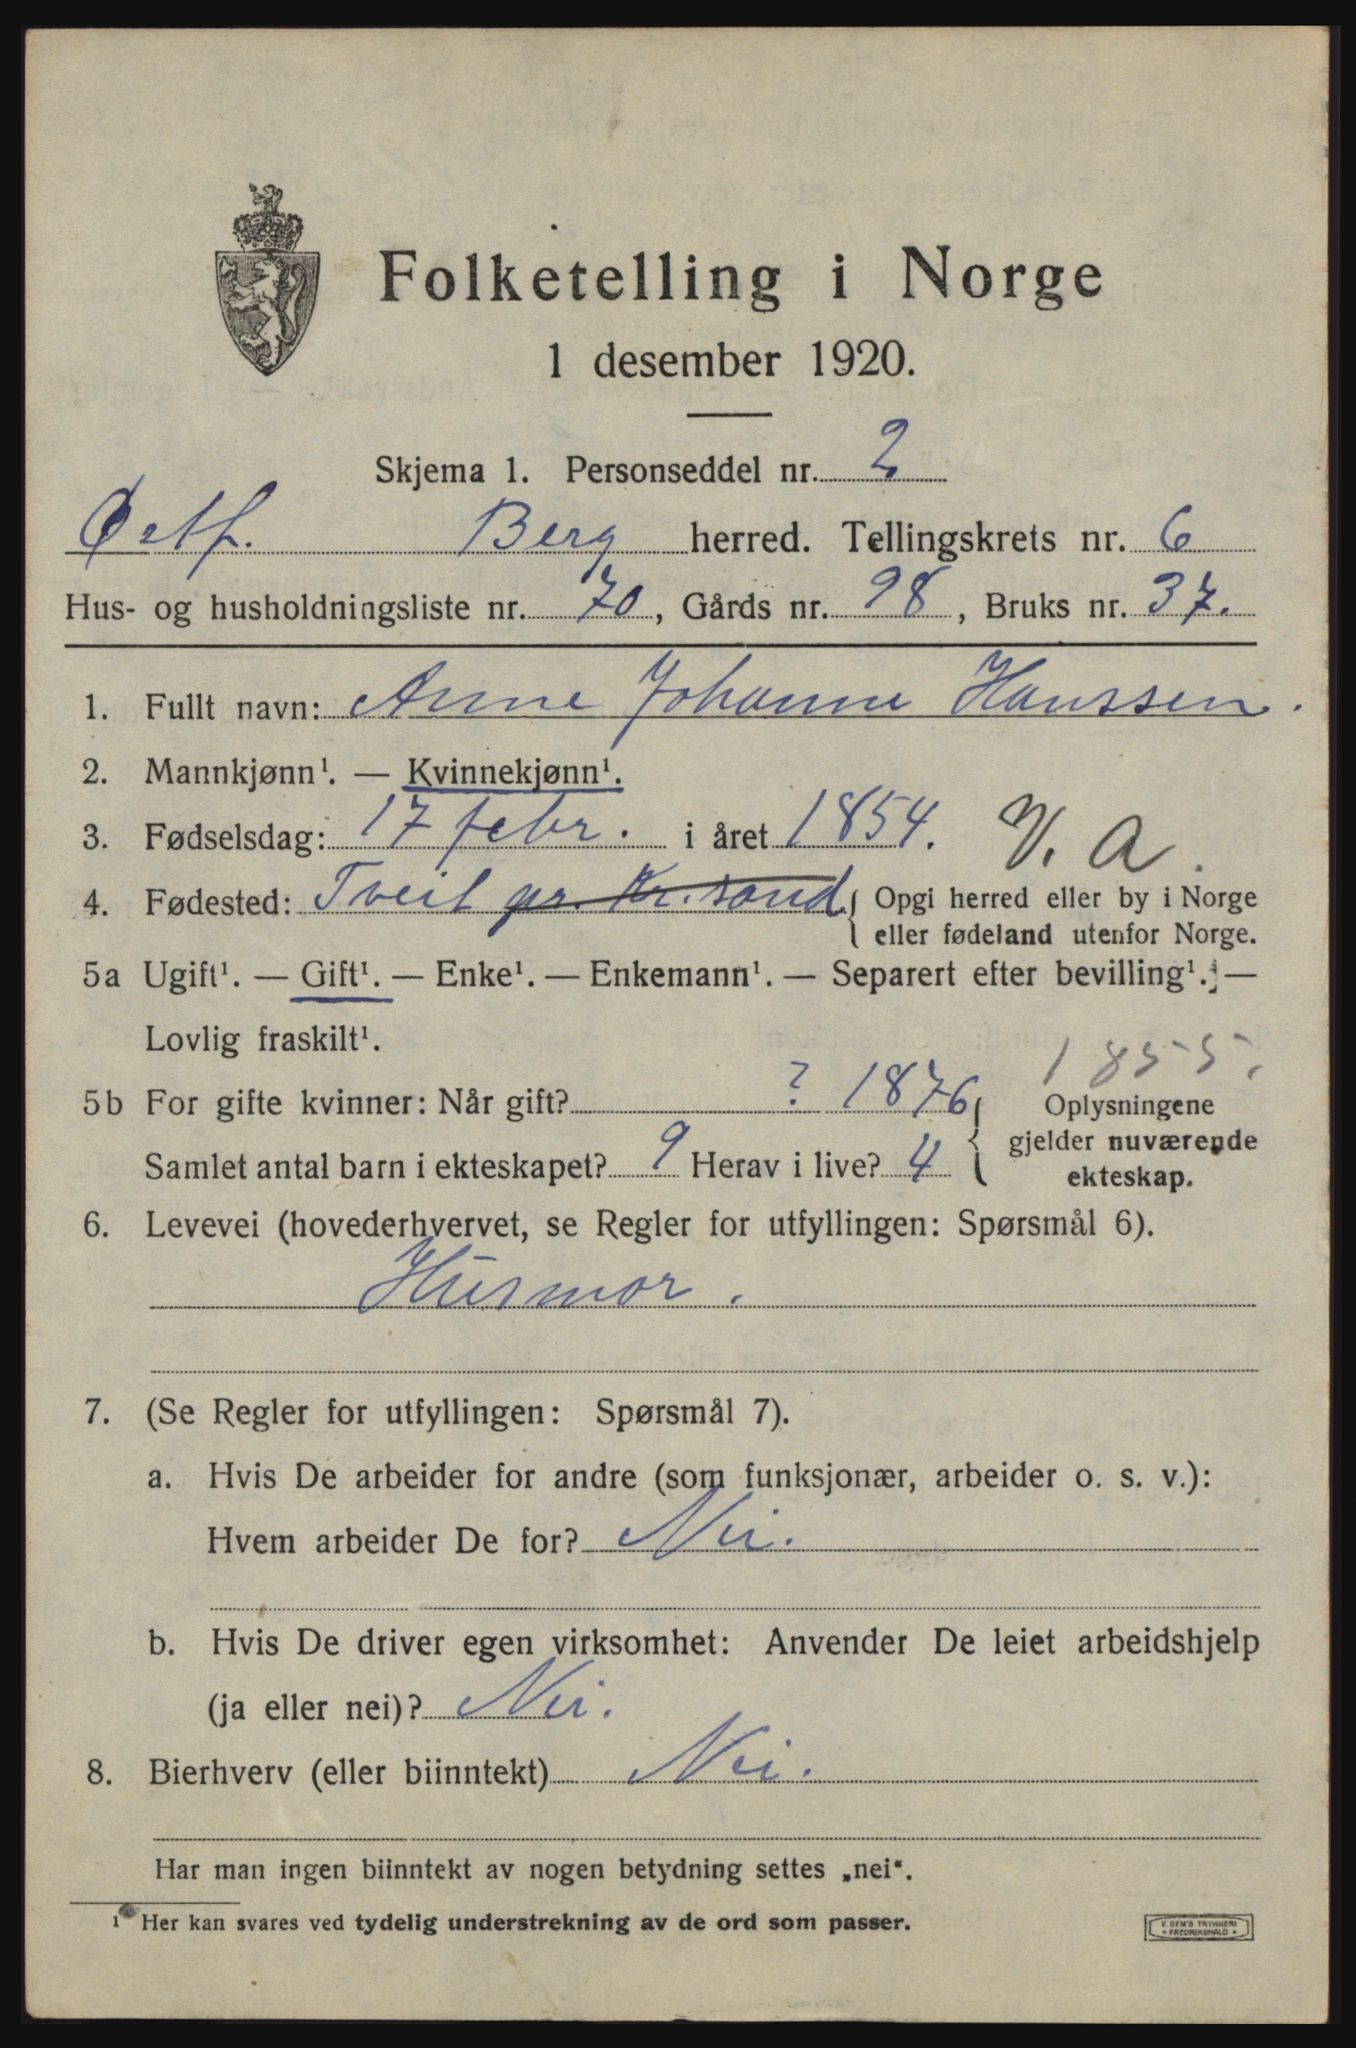 Folketelling i Norge
1 desember 1920.
Skjema 1. Personseddel nr. 2
Østf. Berg herred. Tellingskrets nr. 6
Hus- og husholdningsliste nr. 70, Gårds nr. 98, Bruks nr. 37.
1. Fullt navn: Anne Johanne Hanssen.
2. Mannkjønn¹. — Kvinnekjønn¹.
3. Fødselsdag: 17 febr. i året 1854. V. A.
4. Fødested: Tveit pr. Kr.sand { Opgi herred eller by i Norge
eller fødeland utenfor Norge.
5a Ugift¹. — Gift¹. — Enke¹. — Enkemann¹. — Separert efter bevilling¹. —
Lovlig fraskilt¹.
1855.
5b For gifte kvinner: Når gift? ? 1876 { Oplysningene
gjelder nuværende
Samlet antal barn i ekteskapet? 9 Herav i live? 4
ekteskap.
6. Levevei (hovederhvervet, se Regler for utfyllingen: Spørsmål 6).
Husmor.
7. (Se Regler for utfyllingen: Spørsmål 7).
a. Hvis De arbeider for andre (som funksjonær, arbeider o. s. v.):
Hvem arbeider De for? Nei.
b. Hvis De driver egen virksomhet: Anvender De leiet arbeidshjelp
(ja eller nei)? Nei.
8. Bierhverv (eller biinntekt) Nei.
Har man ingen biinntekt av nogen betydning settes „nei“.
¹ Her kan svares ved tydelig understrekning av de ord som passer.
E. SEM'S TRYKKERI
* FREDRIKSHALD *